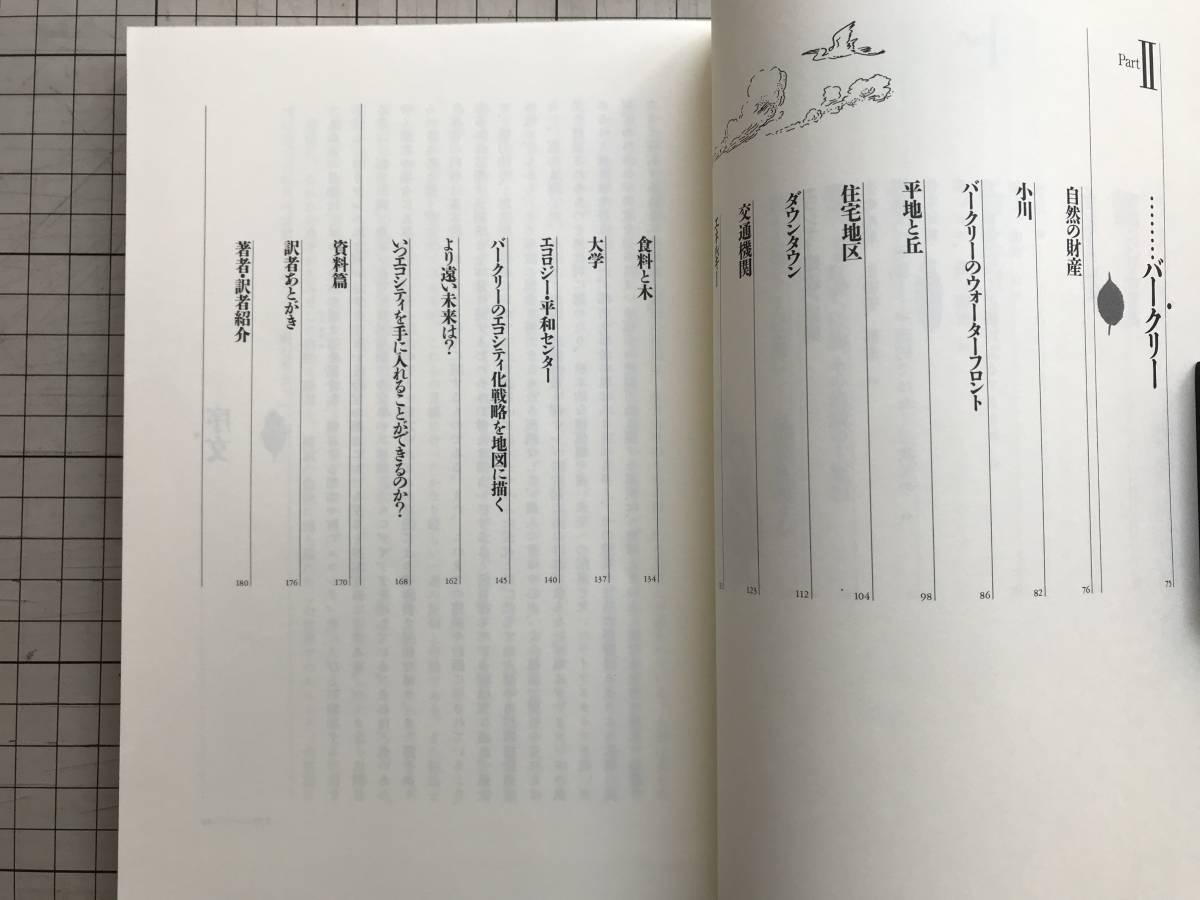 Part Ⅱ
………バークリー 75
自然の財産 76
小川 82
バークリーのウォーターフロント 86
平地と丘 98
住宅地区 104
ダウンタウン 112
交通機関 123
食料と木 134
大学 137
エコロジー・平和センター 140
バークリーのエコシティ化戦略を地図に描く 145
より遠い未来は? 162
いつエコシティを手に入れることができるのか? 168
資料篇 170
訳者あとがき 176
著者・訳者紹介 180
序文